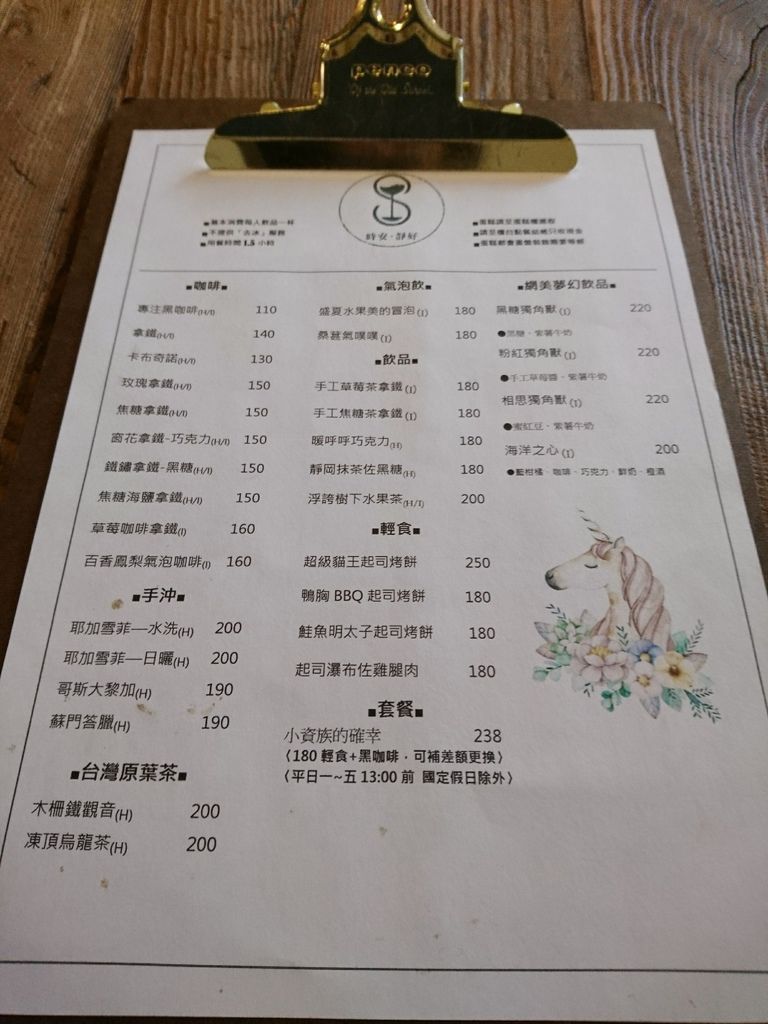 penco
時安·靜好
■基本消費每人飲品一杯
■不提供「去冰」服務
■用餐時間 1.5 小時
■蛋糕請至蛋糕櫃選取
■咖啡■
專注黑咖啡(H/I) 110
拿鐵(H/I) 140
卡布奇諾(H/I) 130
玫瑰拿鐵(H/I) 150
焦糖拿鐵(H/I) 150
窗花拿鐵-巧克力(H/I) 150
鐵鏽拿鐵-黑糖(H/I) 150
焦糖海鹽拿鐵(H/I) 150
草莓咖啡拿鐵(I) 160
百香鳳梨氣泡咖啡(I) 160
■手沖■
耶加雪菲—水洗(H) 200
耶加雪菲—日曬(H) 200
哥斯大黎加(H) 190
蘇門答臘(H) 190
■台灣原葉茶■
木柵鐵觀音(H) 200
凍頂烏龍茶(H) 200
■氣泡飲■
盛夏水果美的冒泡(I) 180
桑葚氣噗噗(I) 180
■飲品■
手工草莓茶拿鐵(I) 180
手工焦糖茶拿鐵(I) 180
暖呼呼巧克力(H) 180
靜岡抹茶佐黑糖(H) 180
浮誇樹下水果茶(H/I) 200
■輕食■
超級貓王起司烤餅 250
鴨胸 BBQ 起司烤餅 180
鮭魚明太子起司烤餅 180
起司瀑布佐雞腿肉 180
■套餐■
小資族的確幸 238
〈180 輕食+黑咖啡，可補差額更換〉
〈平日一~五 13:00 前 國定假日除外〉
■網美夢幻飲品■
黑糖獨角獸(I) 220
●黑糖、紫薯牛奶
粉紅獨角獸(I) 220
●手工草莓醬、紫薯牛奶
相思獨角獸(I) 220
●蜜紅豆、紫薯牛奶
海洋之心(I) 200
●藍柑橘、咖啡、巧克力、鮮奶、橙酒